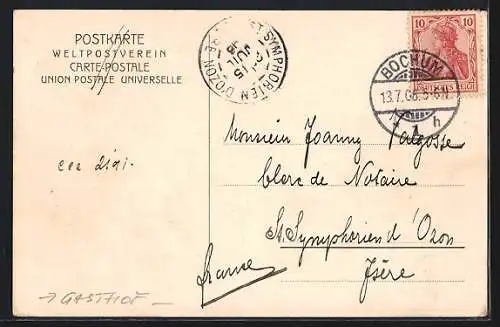 POSTKARTE
WELTPOSTVEREIN
CARTE-POSTALE
UNION POSTALE UNIVERSELLE
ST SYMPHORIEN D'OZON
15
JUIL
10 10
DEUTSCHES REICH
BOCHUM
13.7.08.
1 h
Monsieur Joanny
clerc de Notaire
St Symphorien d'Ozon
Isère
France
→ GASTHOF